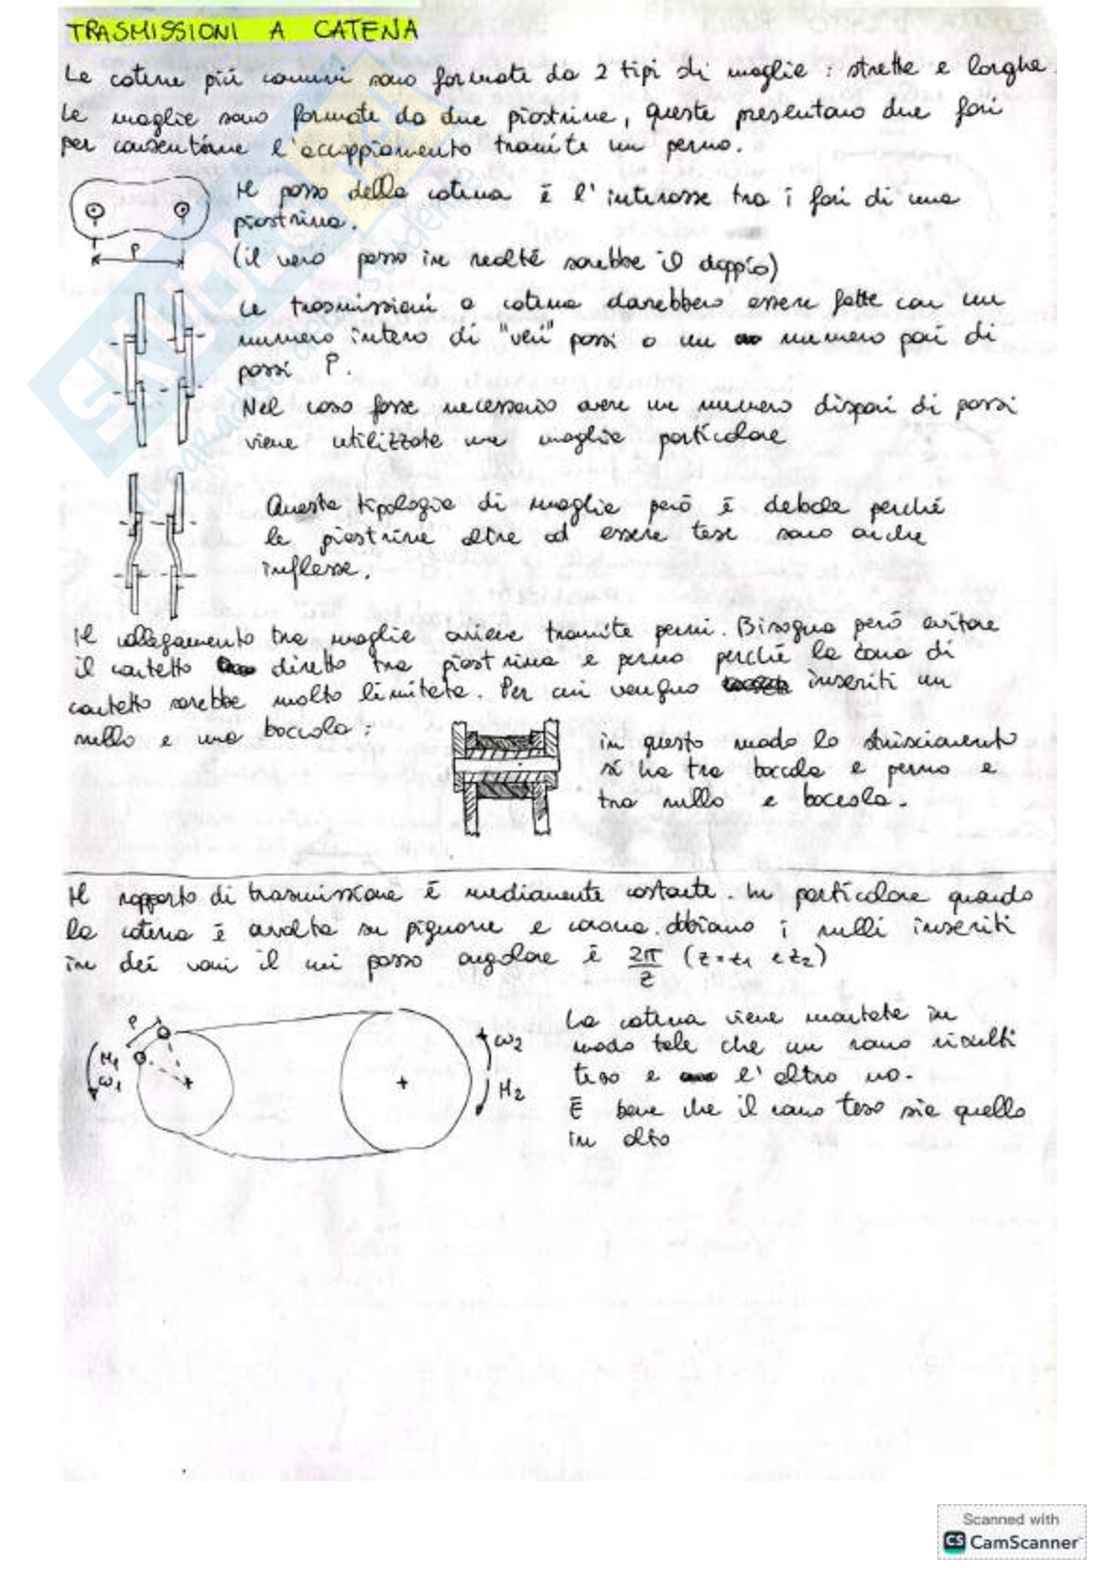 TRASMISSIONI A CATENA
Le catene più comuni sono formate da 2 tipi di maglie : strette e larghe.
Le maglie sono formate da due piastrine, queste presentano due fori
per consentirne l'accoppiamento tramite un perno.
Il passo della catena è l'interasse tra i fori di una
piastrina.
(il vero passo in realtà sarebbe il doppio)
P
Le trasmissioni a catena dovrebbero essere fatte con un
numero intero di "veri" passi o un numero pari di
passi P.
Nel caso fosse necessario avere un numero dispari di passi
viene utilizzata una maglia particolare
Questa tipologia di maglia però è debole perché
le piastrine oltre ad essere tese sono anche
inflesse.
Il collegamento tra maglie avviene tramite perni. Bisogna però evitare
il contatto diretto tra piastrina e perno perché la zona di
contatto sarebbe molto limitata. Per cui vengono inseriti un
rullo e una boccola :
in questo modo lo strisciamento
si ha tra boccola e perno e
tra rullo e boccola.
Il rapporto di trasmissione è mediamente costante. In particolare quando
la catena è avvolta su pignone e corona abbiamo i rulli inseriti
in dei vani il cui passo angolare è 2π/z (z=z1 e z2)
P
M1
ω1
ω2
M2
La catena viene montata in
modo tale che un ramo risulti
teso e l'altro no.
È bene che il ramo teso sia quello
in alto
SKUOLA
Scanned with
CS CamScanner